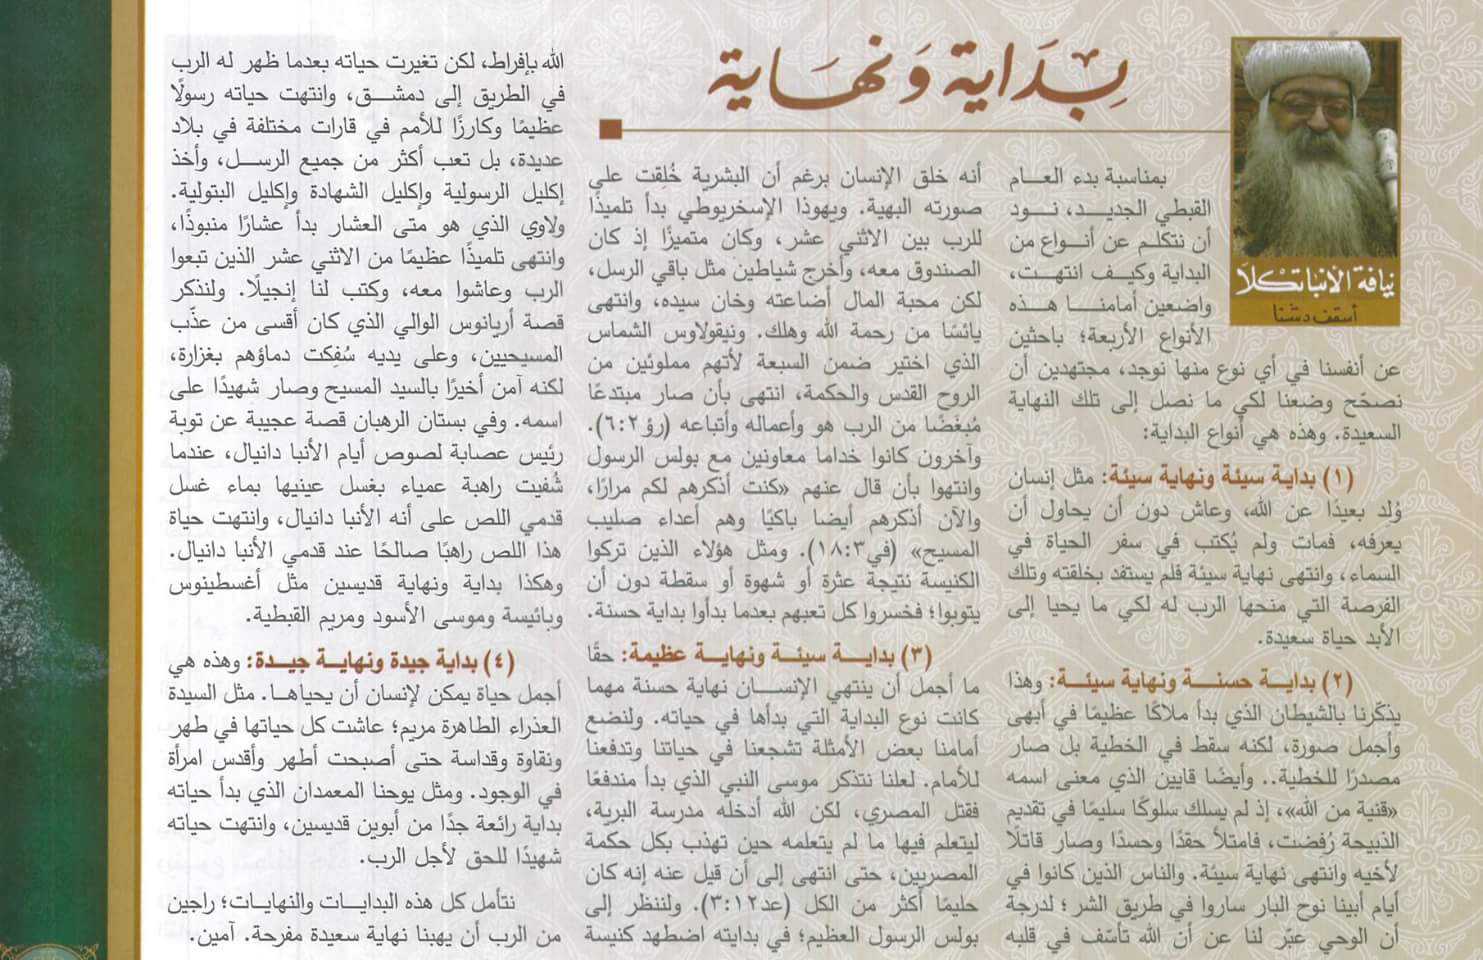 بِدَاية وَنهَاية
نيافة الأنبا تكلا
أسقف دشنا
بمناسبة بدء العـام
القبطي الجديـد، نـود
أن نتكلم عن أنـواع من
البداية وكيـف انتهـت،
واضعين أمامنـا هـذه
الأنواع الأربعة؛ باحثين
عن أنفسنا في أي نوع منها نوجد، مجتهدين أن
نصحّح وضعنا لكي ما نصل إلى تلك النهاية
السعيدة. وهذه هي أنواع البداية:
(١) بداية سيئة ونهاية سيئة: مثل إنسان
وُلد بعيدًا عن الله، وعاش دون أن يحاول أن
يعرفه، فمات ولم يُكتب في سفر الحياة في
السماء، وانتهى نهاية سيئة فلم يستفد بخلقته وتلك
الفرصة التي منحها الرب له لكي ما يحيا إلى
الأبد حياة سعيدة.
(٢) بدايـة حسنـة ونهاية سيئـة: وهذا
يذكّرنا بالشيطان الذي بدأ ملاكًا عظيمًا في أبهى
وأجمل صورة، لكنه سقط في الخطية بل صار
مصدرًا للخطية.. وأيضًا قايين الذي معنى اسمه
«قنية من الله»، إذ لم يسلك سلوكًا سليمًا في تقديم
الذبيحة رُفضت، فامتلأ حقدًا وحسدًا وصار قاتلًا
لأخيه وانتهى نهاية سيئة. والناس الذين كانوا في
أيام أبينا نوح البار ساروا في طريق الشر؛ لدرجة
أن الوحي عبّر لنا عن أن الله تأسّف في قلبه
أنه خلق الإنسان برغم أن البشرية خُلِقت على
صورته البهية. ويهوذا الإسخريوطي بدأ تلميذًا
للرب بين الاثني عشر، وكان متميزًا إذ كان
الصندوق معه، وأخرج شياطين مثل باقي الرسل،
لكن محبة المال أضاعته وخان سيده، وانتهى
يائسًا من رحمة الله وهلك. ونيقولاوس الشماس
الذي اختير ضمن السبعة لأتهم مملوئين من
الروح القدس والحكمة، انتهى بأن صار مبتدعًا
مُبغَضًا من الرب هو وأعماله وأتباعه (رؤ٦:٢).
وآخرون كانوا خداما معاونين مع بولس الرسول
وانتهوا بأن قال عنهم «كنت أذكرهم لكم مرارًا،
والآن أذكرهم أيضا باكيًا وهم أعداء صليب
المسيح» (في١٨:٣). ومثل هؤلاء الذين تركوا
الكنيسة نتيجة عثرة أو شهوة أو سقطة دون أن
يتوبوا؛ فخسروا كل تعبهم بعدما بدأوا بداية حسنة.
(٣) بدايـــة سيئة ونهايـة عظيمة: حقًا
ما أجمل أن ينتهي الإنســان نهاية حسنة مهما
كانت نوع البداية التي بدأها في حياته. ولنضع
أمامنا بعض الأمثلة تشجعنا في حياتنا وتدفعنا
للأمام. لعلنا نتذكر موسى النبي الذي بدأ مندفعًا
فقتل المصري، لكن الله أدخله مدرسة البرية،
ليتعلم فيها ما لم يتعلمه حين تهذب بكل حكمة
المصريين، حتى انتهى إلى أن قيل عنه إنه كان
حليمًا أكثر من الكل (عد٣:١٢). ولننظر إلى
بولس الرسول العظيم؛ في بدايته اضطهد كنيسة
الله بإفراط، لكن تغيرت حياته بعدما ظهر له الرب
في الطريق إلى دمشـق، وانتهت حياته رسولًا
عظيمًا وكارزًا للأمم في قارات مختلفة في بلاد
عديدة، بل تعب أكثر من جميع الرسـل، وأخذ
إكليل الرسولية وإكليل الشهادة وإكليل البتولية.
ولاوي الذي هو متى العشار بدأ عشارًا منبوذًا،
وانتهى تلميذًا عظيمًا من الاثني عشر الذين تبعوا
الرب وعاشوا معه، وكتب لنا إنجيلًا. ولنذكر
قصة أريانوس الوالي الذي كان أقسى من عذّب
المسيحيين، وعلى يديه سُفِكت دماؤهم بغزارة،
لكنه آمن أخيرًا بالسيد المسيح وصار شهيدًا على
اسمه. وفي بستان الرهبان قصة عجيبة عن توبة
رئيس عصابة لصوص أيام الأنبا دانيال، عندما
شُفيت راهبة عمياء بغسل عينيها بماء غسل
قدمي اللص على أنه الأنبا دانيال، وانتهت حياة
هذا اللص راهبًا صالحًا عند قدمي الأنبا دانيال.
وهكذا بداية ونهاية قديسين مثل أغسطينوس
وبائيسة وموسى الأسود ومريم القبطية.
(٤) بداية جيدة ونهايـة جيـدة: وهذه هي
أجمل حياة يمكن لإنسان أن يحياهـا. مثل السيدة
العذراء الطاهرة مريم؛ عاشت كل حياتها في طهر
ونقاوة وقداسة حتى أصبحت أطهر وأقدس امرأة
في الوجود. ومثل يوحنا المعمدان الذي بدأ حياته
بداية رائعة جدًا من أبوين قديسين، وانتهت حياته
شهيدًا للحق لأجل الرب.
نتأمل كل هذه البدايـات والنهايات؛ راجين
من الرب أن يهبنا نهاية سعيدة مفرحة. آمين.